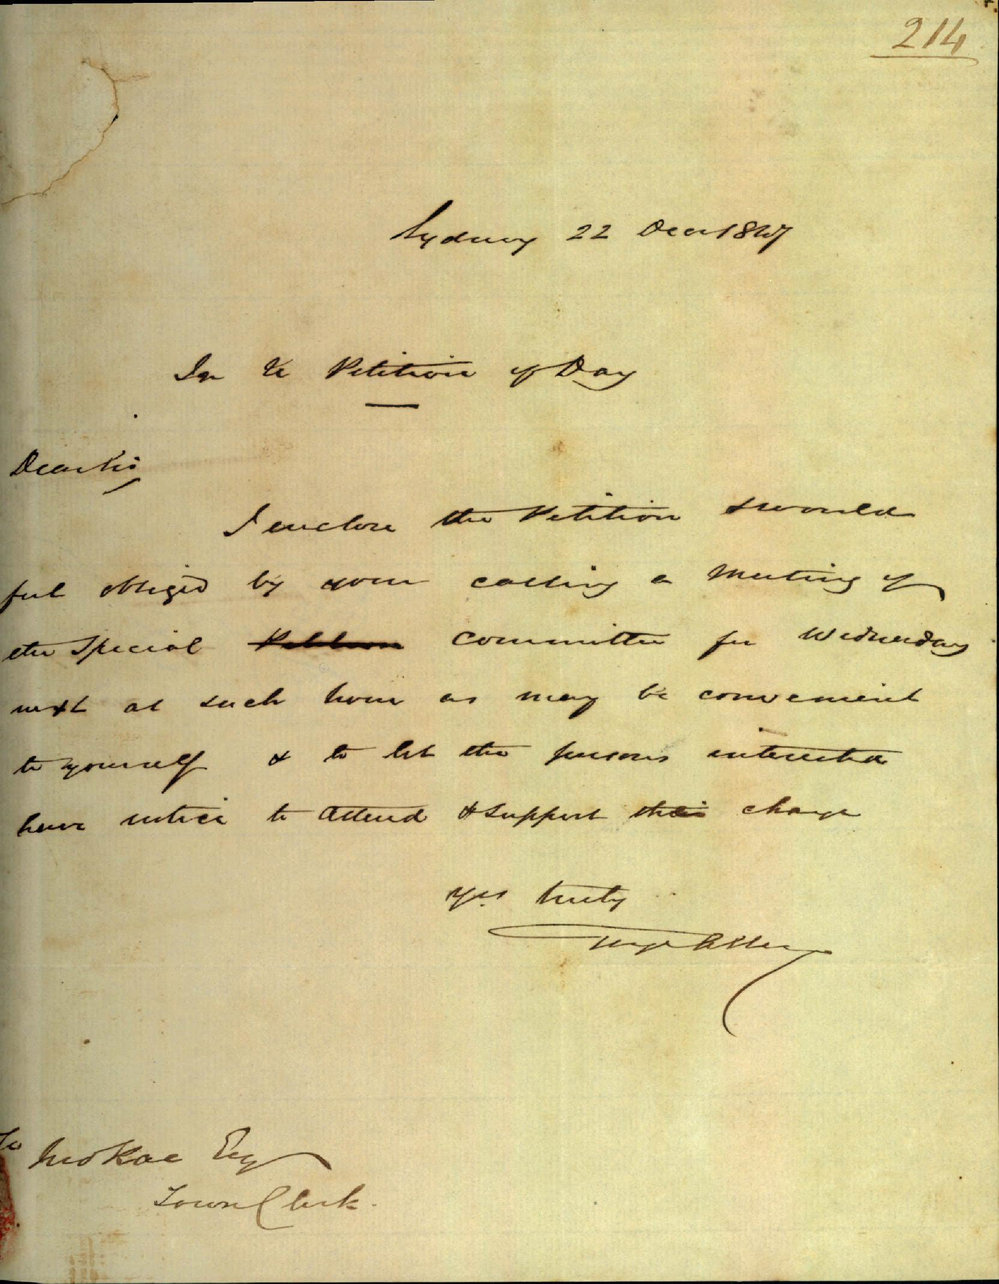 214
Sydney 22 Decr 1847
In re Petition of Day
Dear Sir
I enclose the Petition & would
feel obliged by your calling a Meeting of
the Special Committee for Wednesday
next at such hour as may be convenient
to yourself & to let the persons interested
have notice to attend & support their charge
Yrs truly
To Jno Rae Esq
Town Clerk.